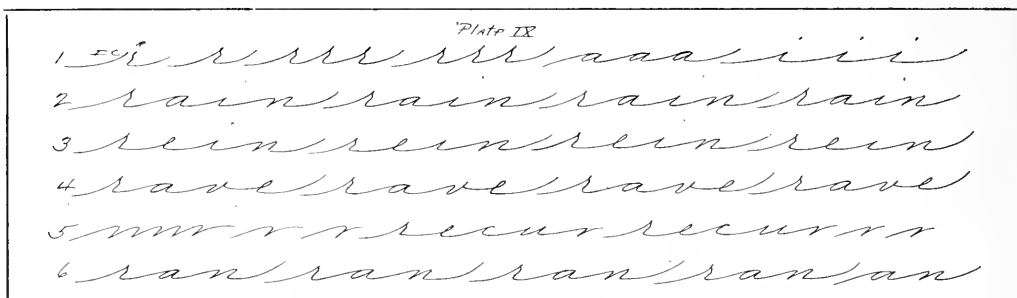 Plate IX
1 r r rrr rrr aaa i i i
2 rain rain rain rain
3 rein rein rein rein
4 rave rave rave rave
5 recur recur r r
6 ran ran ran ran an